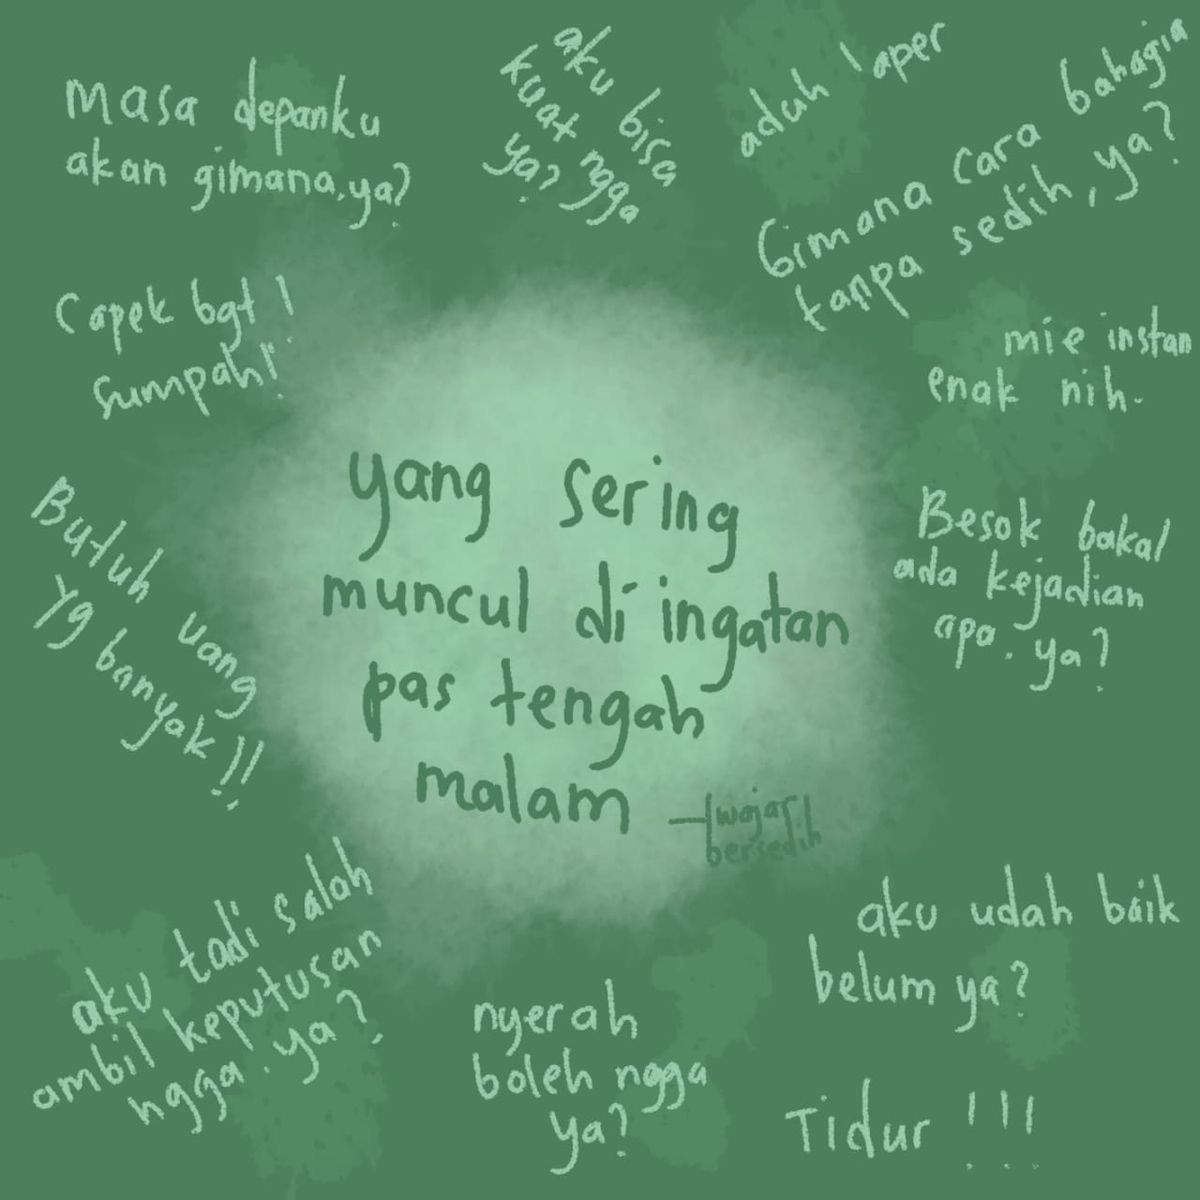 masa depanku
akan gimana, ya?
aku bisa
kuat ngga
ya?
aduh laper
Gimana cara bahagia
tanpa sedih, ya?
Capek bgt!
Sumpah!
mie instan
enak nih.
Butuh uang
yg banyak!!
yang sering
muncul di ingatan
pas tengah
malam
wajar
bersedih
Besok bakal
ada kejadian
apa. ya?
aku tadi salah
ambil keputusan
ngga. ya?
nyerah
boleh ngga
ya?
aku udah baik
belum ya?
Tidur !!!